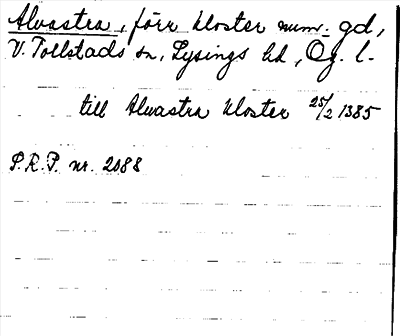 Alvastra, förr kloster num. gd,
V. Tollstads sn, Lysings hd, Ög. l.
till Alvastra kloster 25/2 1385
S.R.P. nr. 2088